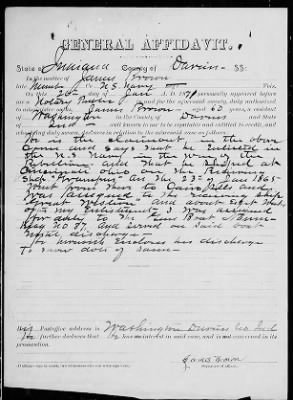 GENERAL AFFIDAVIT.
State of Indiana County of Daviess SS:
In the matter of James Brown
U.S. Navy
On this 26th day of Jan A. D. 18 personally appeared before
me a Notary Public in and for the aforesaid county, duly authorized
to administer oaths, James Brown aged 63 a resident
of Washington in the County of Daviess and
State of
well known to me to be reputable and entitled to credit, and
who being duly sworn, declares in relation to the aforesaid case as follows:
he is the claimant in the above
Cause and says that he enlisted
in the U.S. Navy in the war of the
Rebellion and that he shipped at
Cincinnati Ohio on the Receiving
Ship on the 23rd of Jan 1865
went from there to Cairo Ills and
was assigned to the receiving ship
Great Western and about
of my Enlistment I was assigned
for duty to the Gun Boat
No 57 and served on said boat
until discharge
he herewith encloses his discharge
to show date of same
His Postoffice address is Washington Daviess Co Ind
He further declares that he has no interest in said case, and is not concerned in its
prosecution.
James Brown